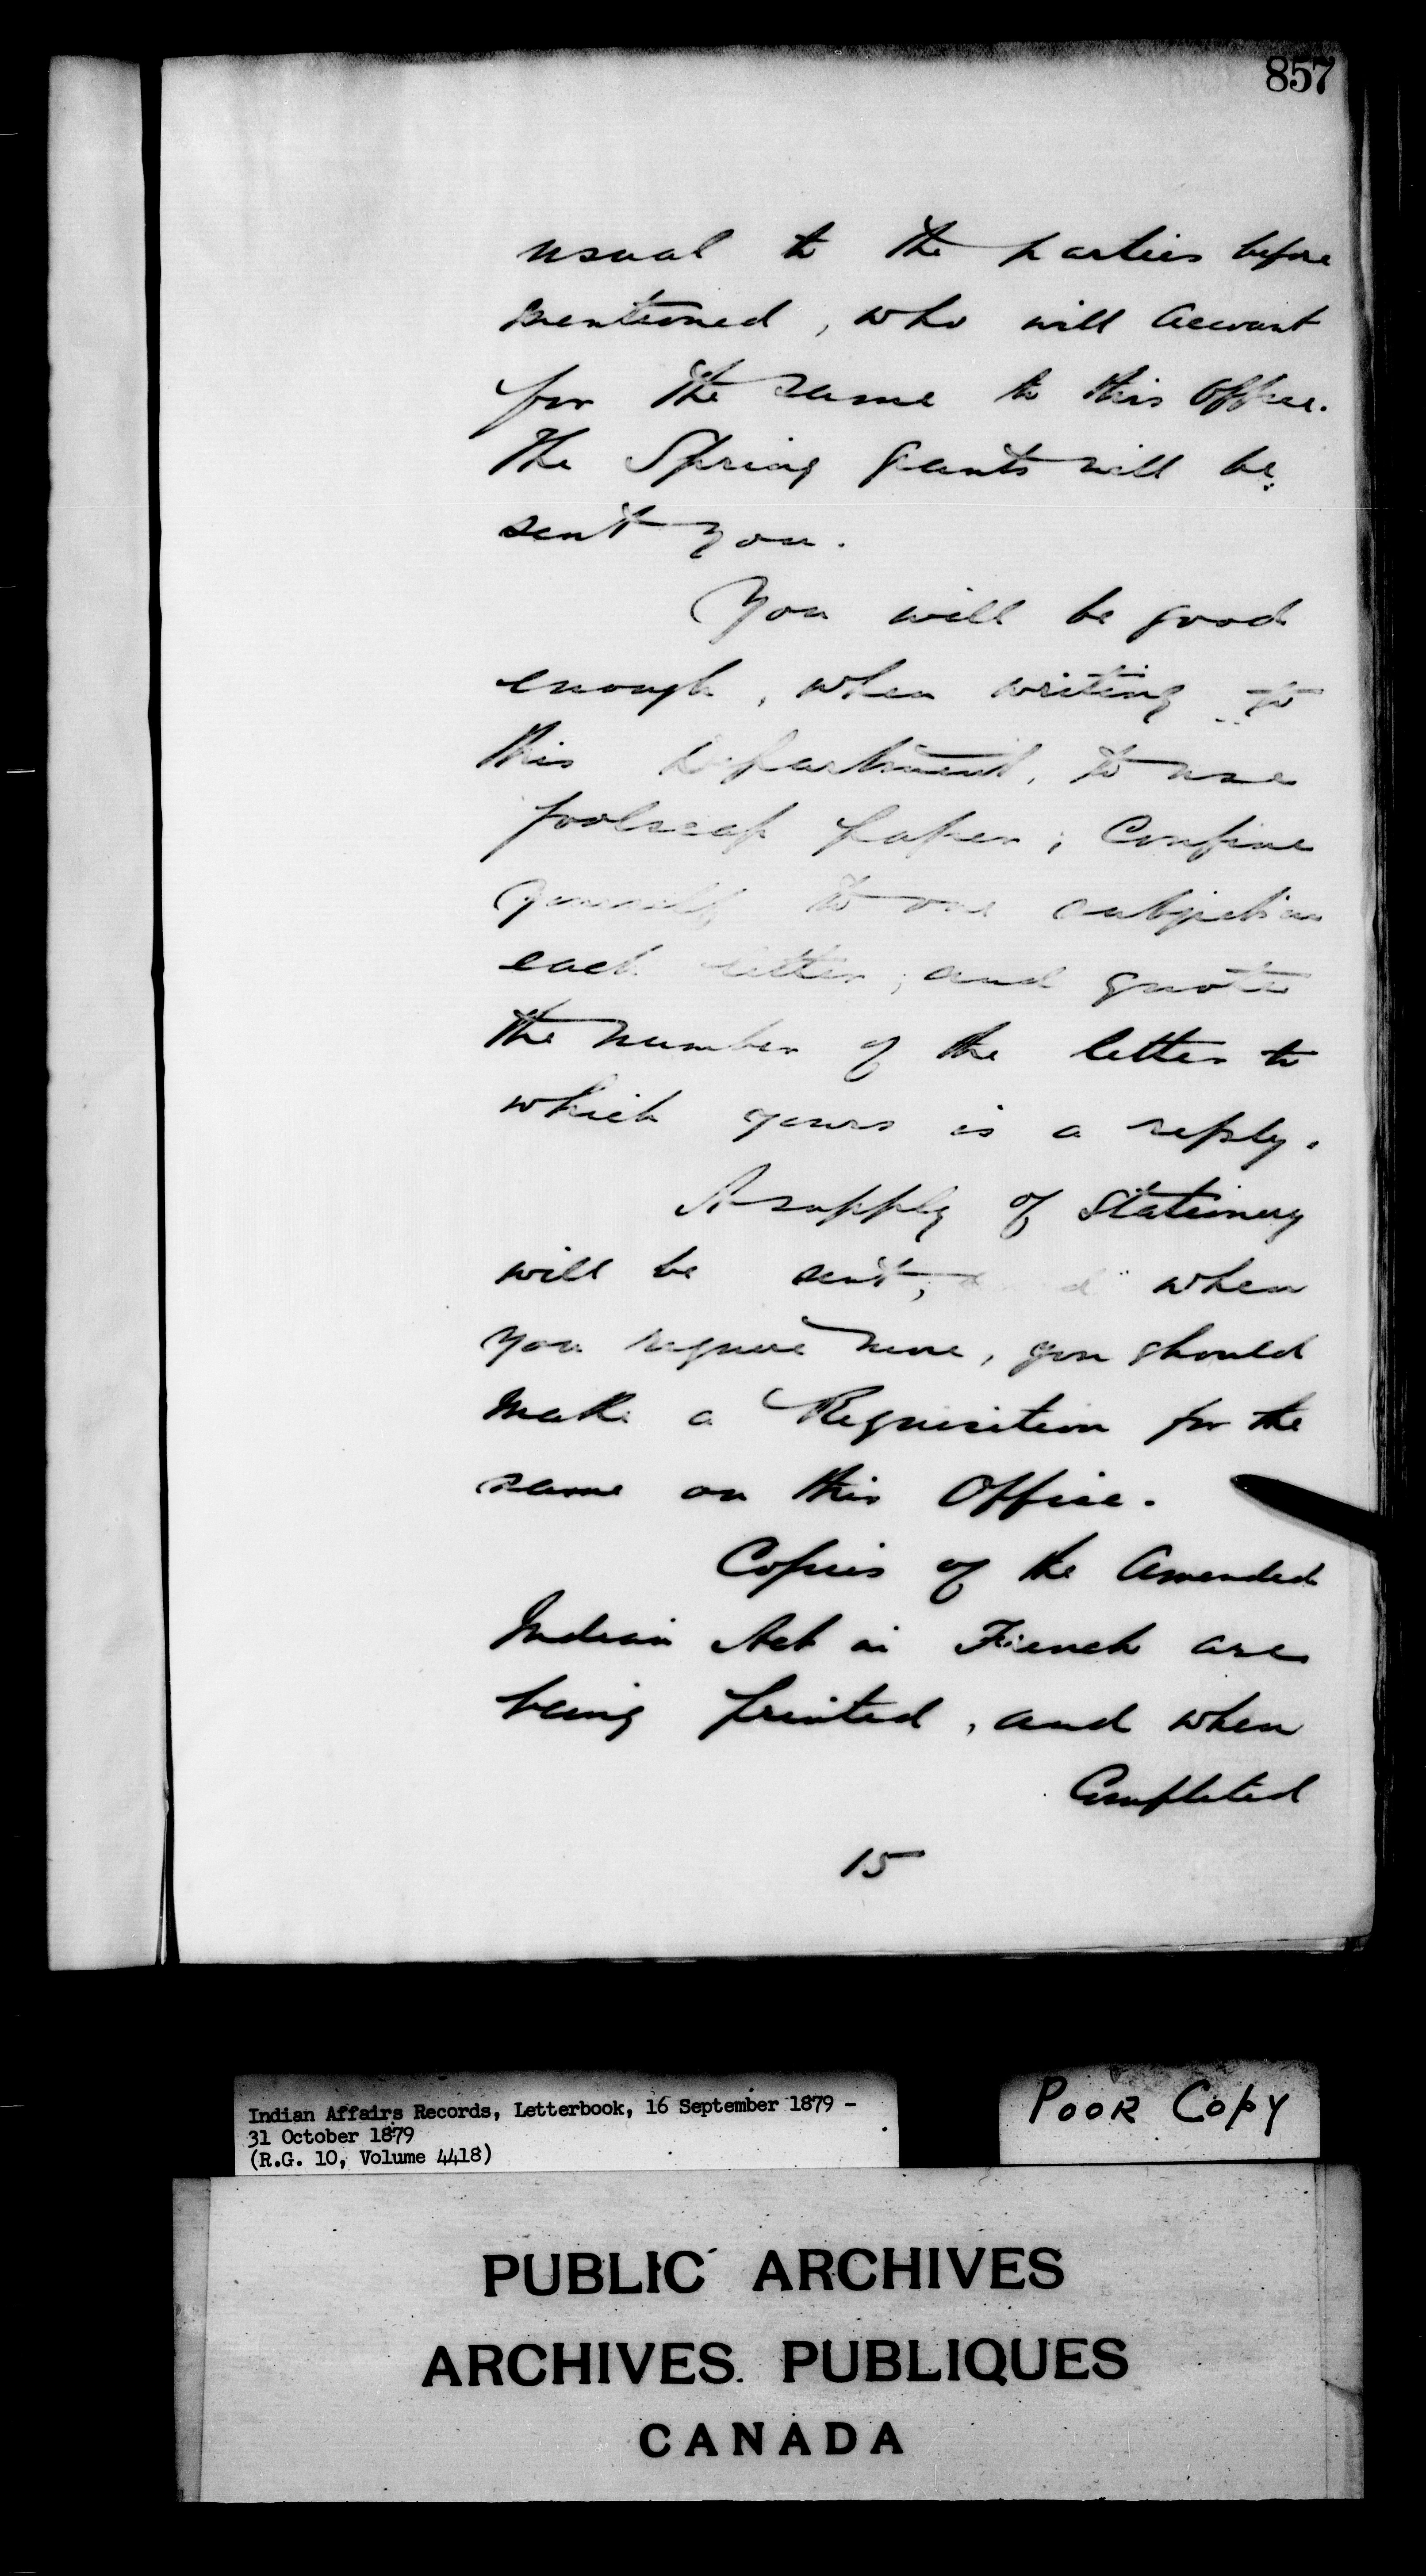 857
usual to the parties before
mentioned, who will account
for the same to this Office.
The Spring grants will be
sent you.
You will be good
enough, when writing to
this Department, to use
foolscap paper; Confine
to one subject in
each letter; and quote
the number of the letter to
which yours is a reply.
A supply of Stationery
will be sent, when
you require more, you should
make a Requisition for the
same on this Office.
Copies of the Amended
Indian Act in French are
being printed, and when
Completed
15
Indian Affairs Records, Letterbook, 16 September 1879 -
31 October 1879
(R.G. 10, Volume 4418)
POOR COPY
PUBLIC ARCHIVES
ARCHIVES PUBLIQUES
CANADA